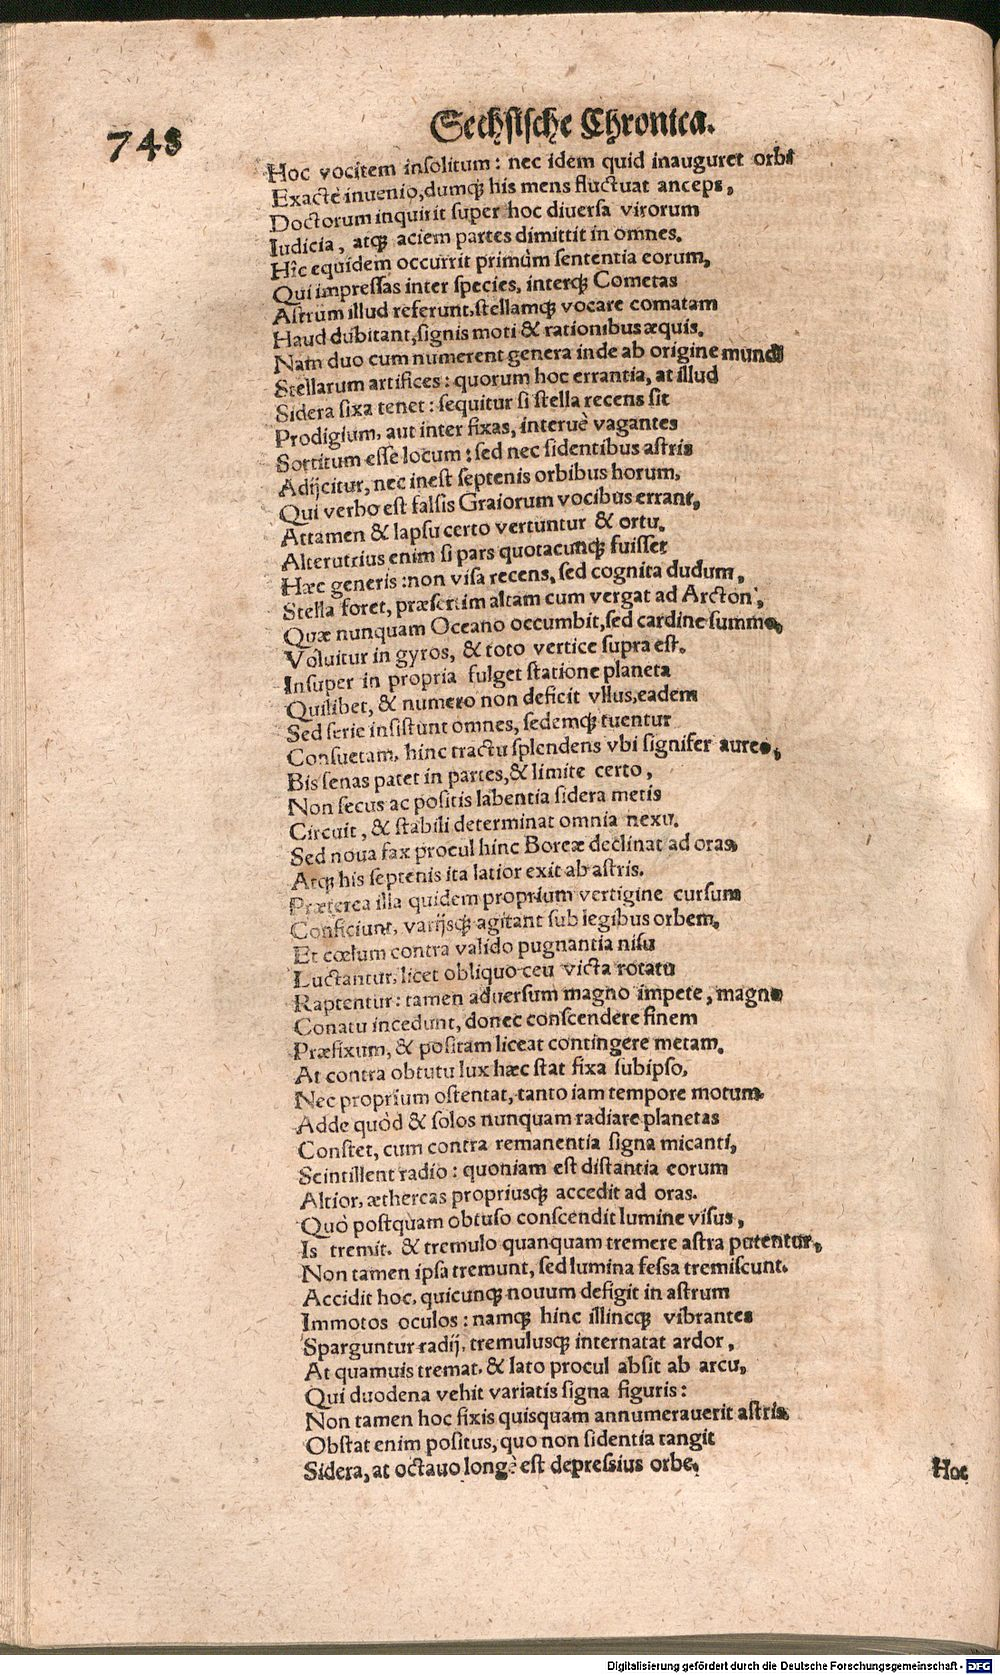 748
Sechsische Chronica.
Hoc vocitem insolitum: nec idem quid inauguret orbi
Exactè inuenio, dumq́; his mens fluctuat anceps,
Doctorum inquirit super hoc diuersa virorum
Iudicia, atq́; aciem partes dimittit in omnes.
Hîc equidem occurrit primùm sententia eorum,
Qui impressas inter species, interq́; Cometas
Astrum illud referunt, stellamq́; vocare comatam
Haud dubitant, signis moti & rationibus æquis.
Nam duo cum numerent genera inde ab origine mundi
Stellarum artifices: quorum hoc errantia, at illud
Sidera fixa tenet: sequitur si stella recens sit
Prodigium, aut inter fixas, interuè vagantes
Sortitum esse locum: sed nec sidentibus astris
Adijcitur, nec inest septenis orbibus horum,
Qui verbo est falsis Graiorum vocibus errant,
Attamen & lapsu certo vertuntur & ortu.
Alterutrius enim si pars quotacunq́; fuisset
Hæc generis: non visa recens, sed cognita dudum,
Stella foret, præsertim altam cum vergat ad Arcton,
Quæ nunquam Oceano occumbit, sed cardine summo,
Voluitur in gyros, & toto vertice supra est.
Insuper in propria fulget statione planeta
Quilibet, & numero non deficit vllus, eadem
Sed serie insistunt omnes, sedemq́; tuentur
Consuetam, hinc tractu splendens vbi signifer aureo,
Bis senas patet in partes, & limite certo,
Non secus ac positis labentia sidera metis
Circuit, & stabili determinat omnia nexu.
Sed noua fax procul hinc Boreæ declinat ad oras,
Atq́; his septenis ita latior exit ab astris.
Præterea illa quidem proprium vertigine cursum
Conficiunt, varijsq́; agitant sub legibus orbem,
Et cœlum contra valido pugnantia nisu
Luctantur, licet obliquo ceu victa rotatu
Raptentur: tamen aduersum magno impete, magno
Conatu incedunt, donec conscendere finem
Præfixum, & positam liceat contingere metam.
At contra obtutu lux hæc stat fixa subipso,
Nec proprium ostentat, tanto iam tempore motum.
Adde quòd & solos nunquam radiare planetas
Constet, cum contra remanentia signa micanti,
Scintillent radio: quoniam est distantia eorum
Altior, æthereas propriusq́; accedit ad oras.
Quò postquam obtuso conscendit lumine visus,
Is tremit. & tremulo quanquam tremere astra putentur,
Non tamen ipsa tremunt, sed lumina fessa tremiscunt.
Accidit hoc, quicunq́; nouum defigit in astrum
Immotos oculos: namq́; hinc illincq́; vibrantes
Sparguntur radij, tremulusq́; internatat ardor,
At quamuis tremat, & lato procul absit ab arcu,
Qui duodena vehit variatis signa figuris:
Non tamen hoc fixis quisquam annumerauerit astris
Obstat enim positus, quo non sidentia tangit
Sidera, at octauo longè est depressius orbe,
Hoc
Digitalisierung gefördert durch die Deutsche Forschungsgemeinschaft - DFG